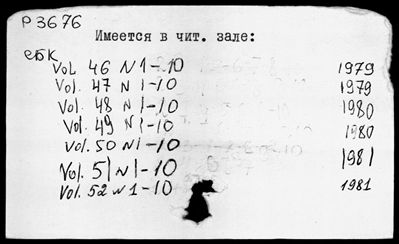 Р3676
Имеется в чит. зале:
сбк
Vol. 46 N 1-10 1979
Vol. 47 N 1-10 1979
Vol. 48 N 1-10 1980
Vol. 49 N 1-10 1980
Vol. 50 N 1-10
Vol. 51 N 1-10 1981
Vol. 52 N 1-10 1981